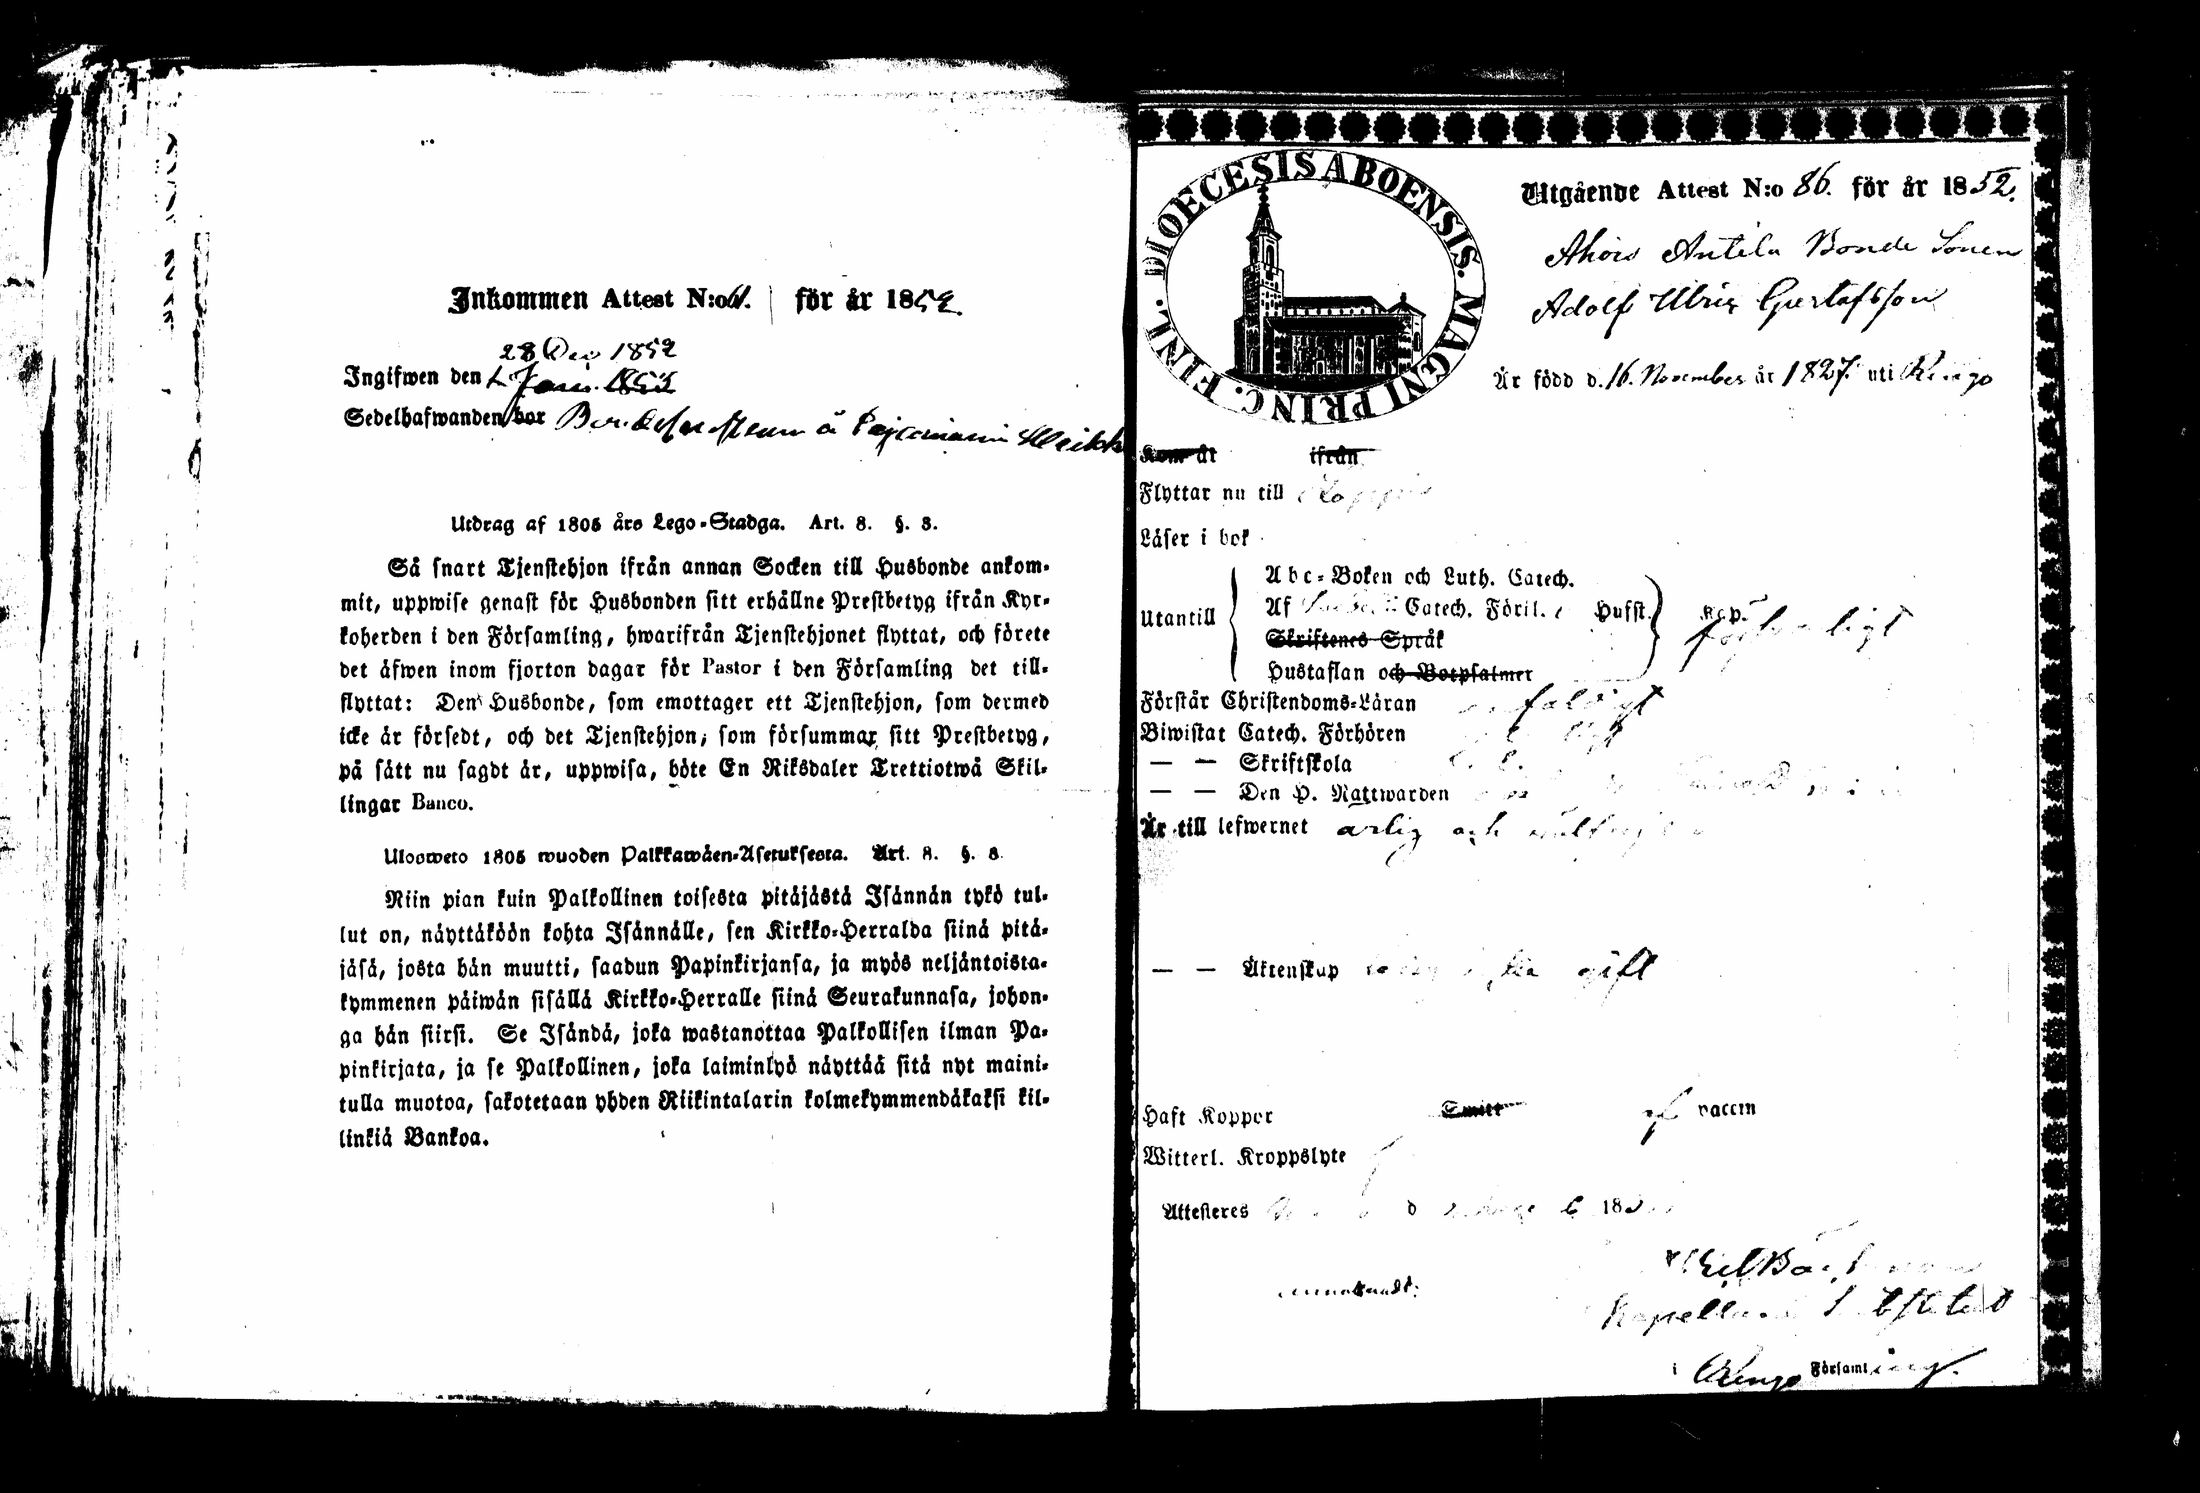 Inkommen Attest N:o 61. för år 1852.
28 Dec 1852
Ingifwen den 2 Jan. 1853
Sedelhafwanden bor
Utdrag af 1805 års Lego-Stadga. Art. 8. §. 8.
Så snart Tjenstehjon ifrån annan Socken till Husbonde ankom-
mit, uppwise genast för Husbonden sitt erhållne Prestbetyg ifrån Kyr-
koherden i den Församling, hwarifrån Tjenstehjonet flyttat, och förete
det äfwen inom fjorton dagar för Pastor i den Församling det till-
flyttat: Den Husbonde, som emottager ett Tjenstehjon, som dermed
icke är försedt, och det Tjenstehjon, som försummar sitt Prestbetyg,
på sätt nu sagdt är, uppwisa, böte En Riksdaler Trettiotwå Skil-
lingar Banco.
Ulosweto 1805 wuoden Palkkawäen-Asetuksesta. Art. 8. §. 8.
Niin pian kuin Palkollinen toisesta pitäjästä Isännän tykö tul-
lut on, näyttäköön kohta Isännälle, sen Kirkko-Herralda siinä pitä-
jäsä, josta hän muutti, saadun Papinkirjansa, ja myös neljäntoista-
kymmenen päiwän sisällä Kirkko-Herralle siinä Seurakunnasa, johon-
ga hän siirsi. Se Isändä, joka wastanottaa Palkollisen ilman Pa-
pinkirjata, ja se Palkollinen, joka laiminlyö näyttää sitä nyt maini-
tulla muotoa, sakotetaan yhden Riikintalarin kolmekymmendäkaksi kil-
linkiä Bankoa.
DIOECESIS ABOENSIS. MAGNI PRINC. FINL.
Utgående Attest N:o 86. för år 1852.
Ahois Antila Bonde Sonen
Adolf Ulric Gustafsson
Är född d. 16. November år 1827. uti Rengo
Kom åt ifrån
Flyttar nu till Loppis
Läser i bok
Utantill
Abc-Boken och Luth. Catech.
Af Catech. Föril. Hufst. Kap.
Skriftenes Språk
Hustaflan och Botpsalmer
förswarligt
Förstår Christendoms-Läran enfaldigt
Biwistat Catech. Förhören
— — Skriftskola
— — Den H. Nattwarden
Är till lefwernet ärlig och
— — Äktenskap gift
Haft Koppor Smitt af vaccin
Witterl. Kroppslyte
Attesteres d 185
Kapellans Substitut
i Rengo Församling.